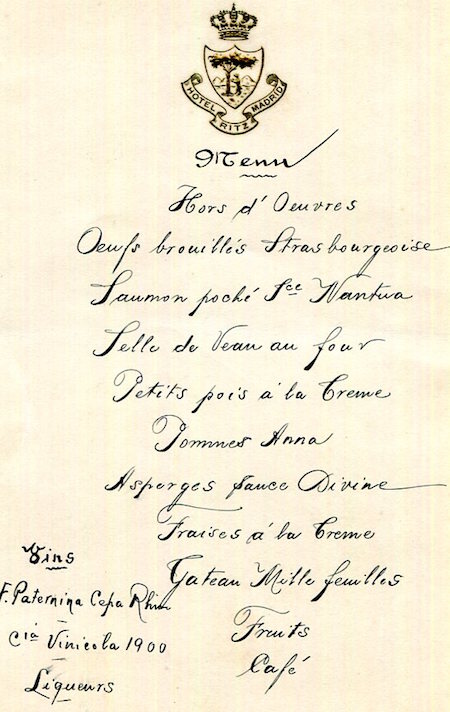 HOTEL RITZ MADRID
Menu
Hors d'Oeuvres
Oeufs brouillés Strasbourgeoise
Saumon poché Sce Nantua
Selle de Veau au four
Petits pois à la Creme
Pommes Anna
Asperges sauce Divine
Fraises à la Creme
Gateau Mille feuilles
Fruits
Café
Vins
F. Paternina Cepa Rhin
Cia Vinicola 1900
Liqueurs